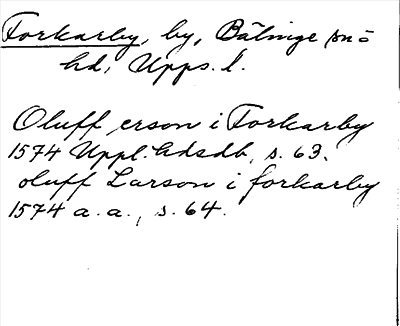 Forkarby, by, Bälinge sn o
hd, Upps. l.
Oluff erson i Forkarby
1574 Uppl. hdsdb, s. 63.
oluff Larson i forkarby
1574 a. a., s. 64.